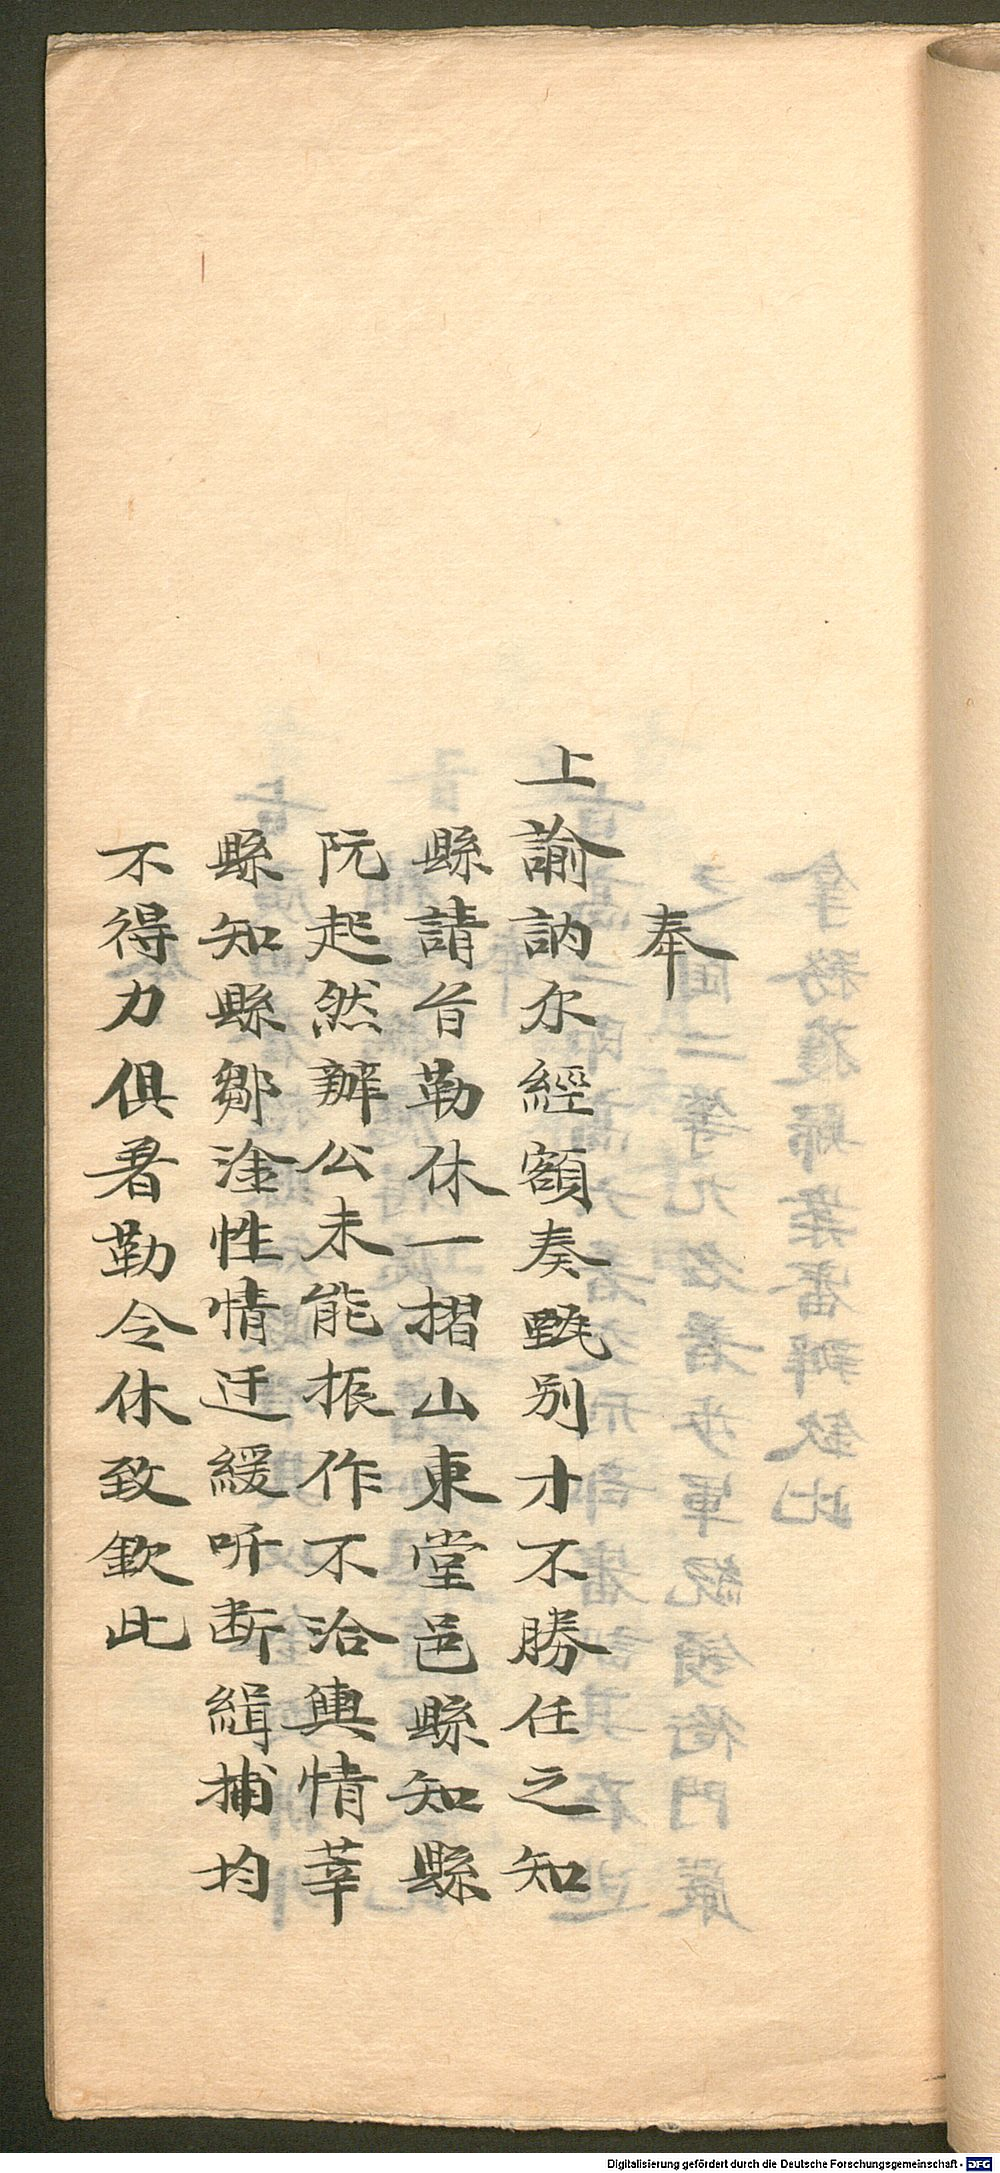 奉
上諭訥尔經額奏甄別才不勝任之知
縣請旨勒休一摺山東堂邑縣知縣
阮起然辦公未能振作不洽輿情莘
縣知縣鄒淦性情迂緩听斷緝捕均
不得力俱著勒令休致欽此
Digitalisierung gefördert durch die Deutsche Forschungsgemeinschaft - DFG